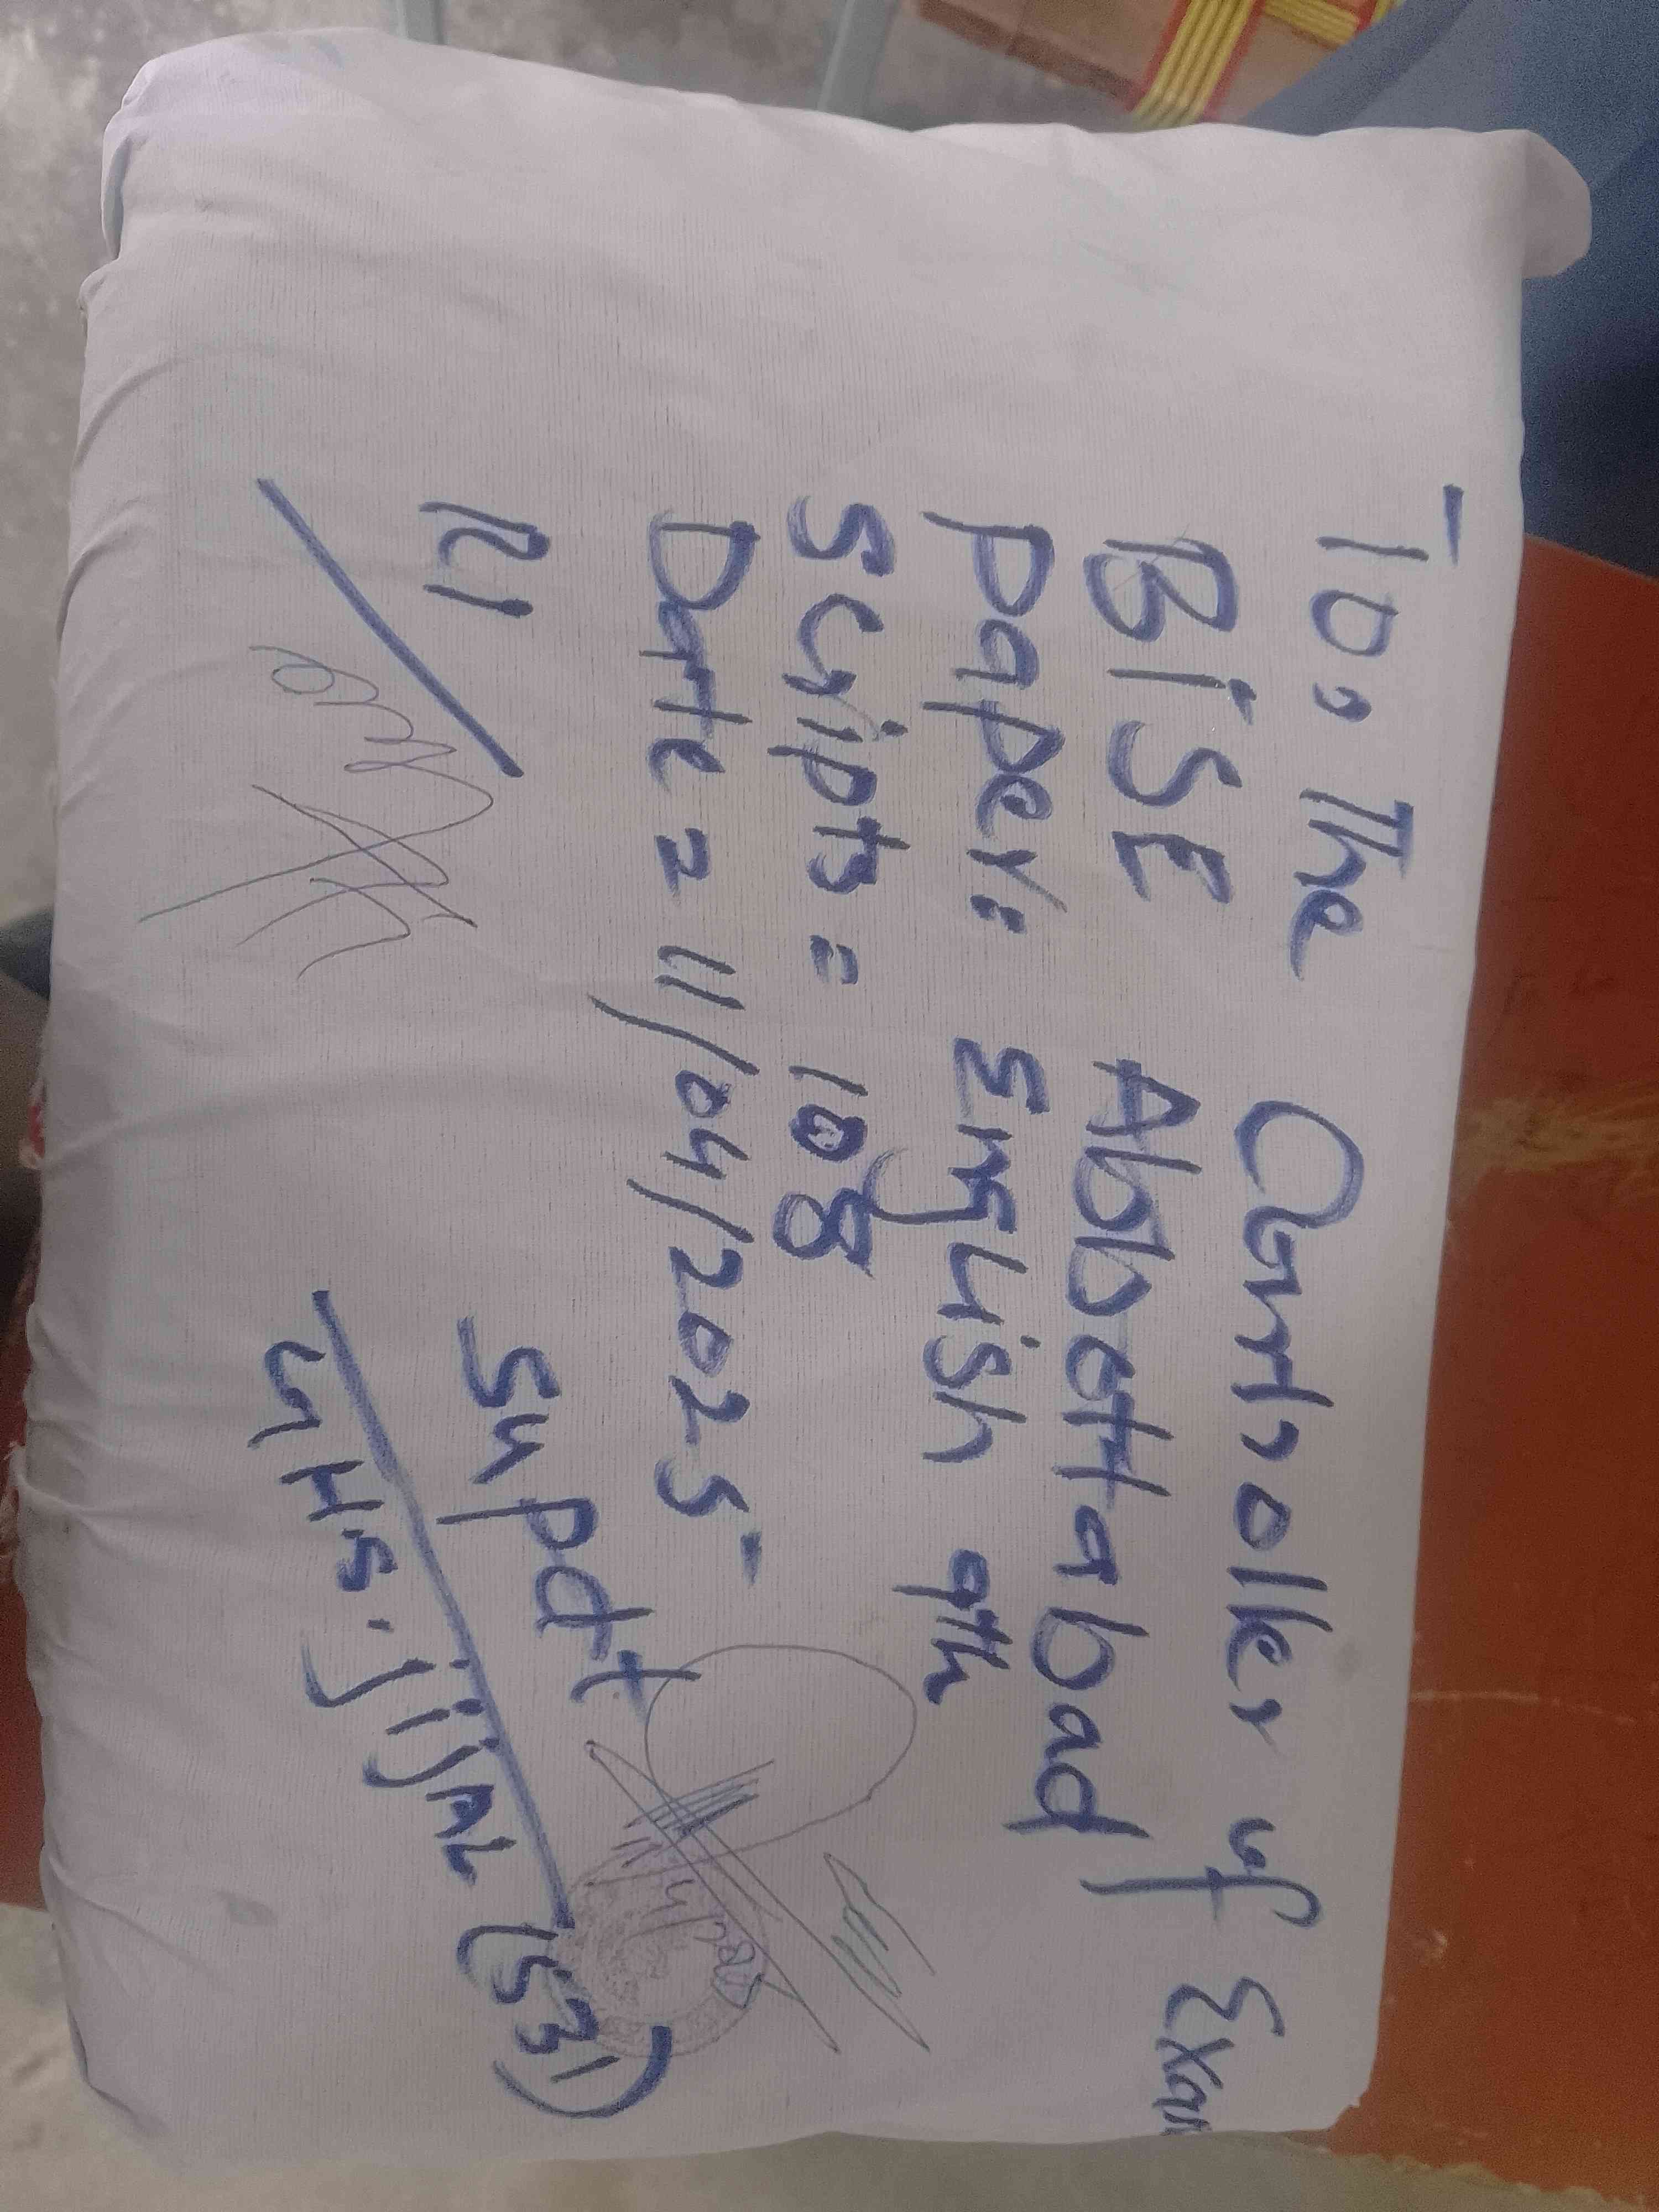 To, The Controller of Exam
BISE Abbottabad
Paper: English 9th
Scripts = 108
Date = 11/04/2025
RI
Supdt
GHS. jijal (531)